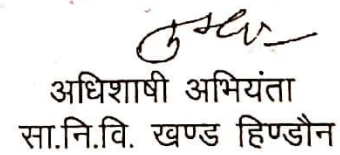 अधिशाषी अभियंता
सा.नि.वि. खण्ड हिण्डौन